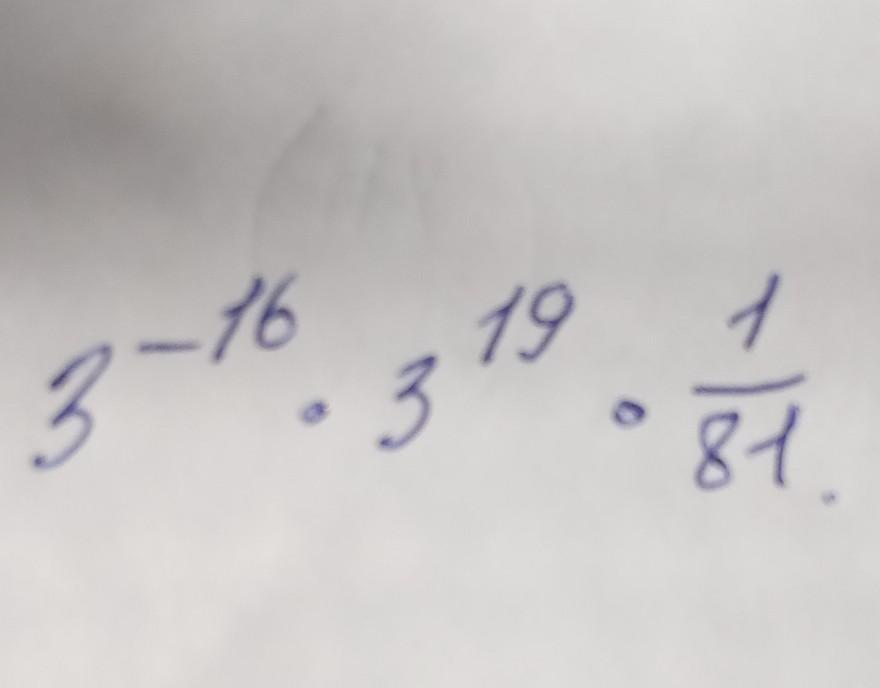 3^{-16} · 3^{19} · \frac{1}{81}.